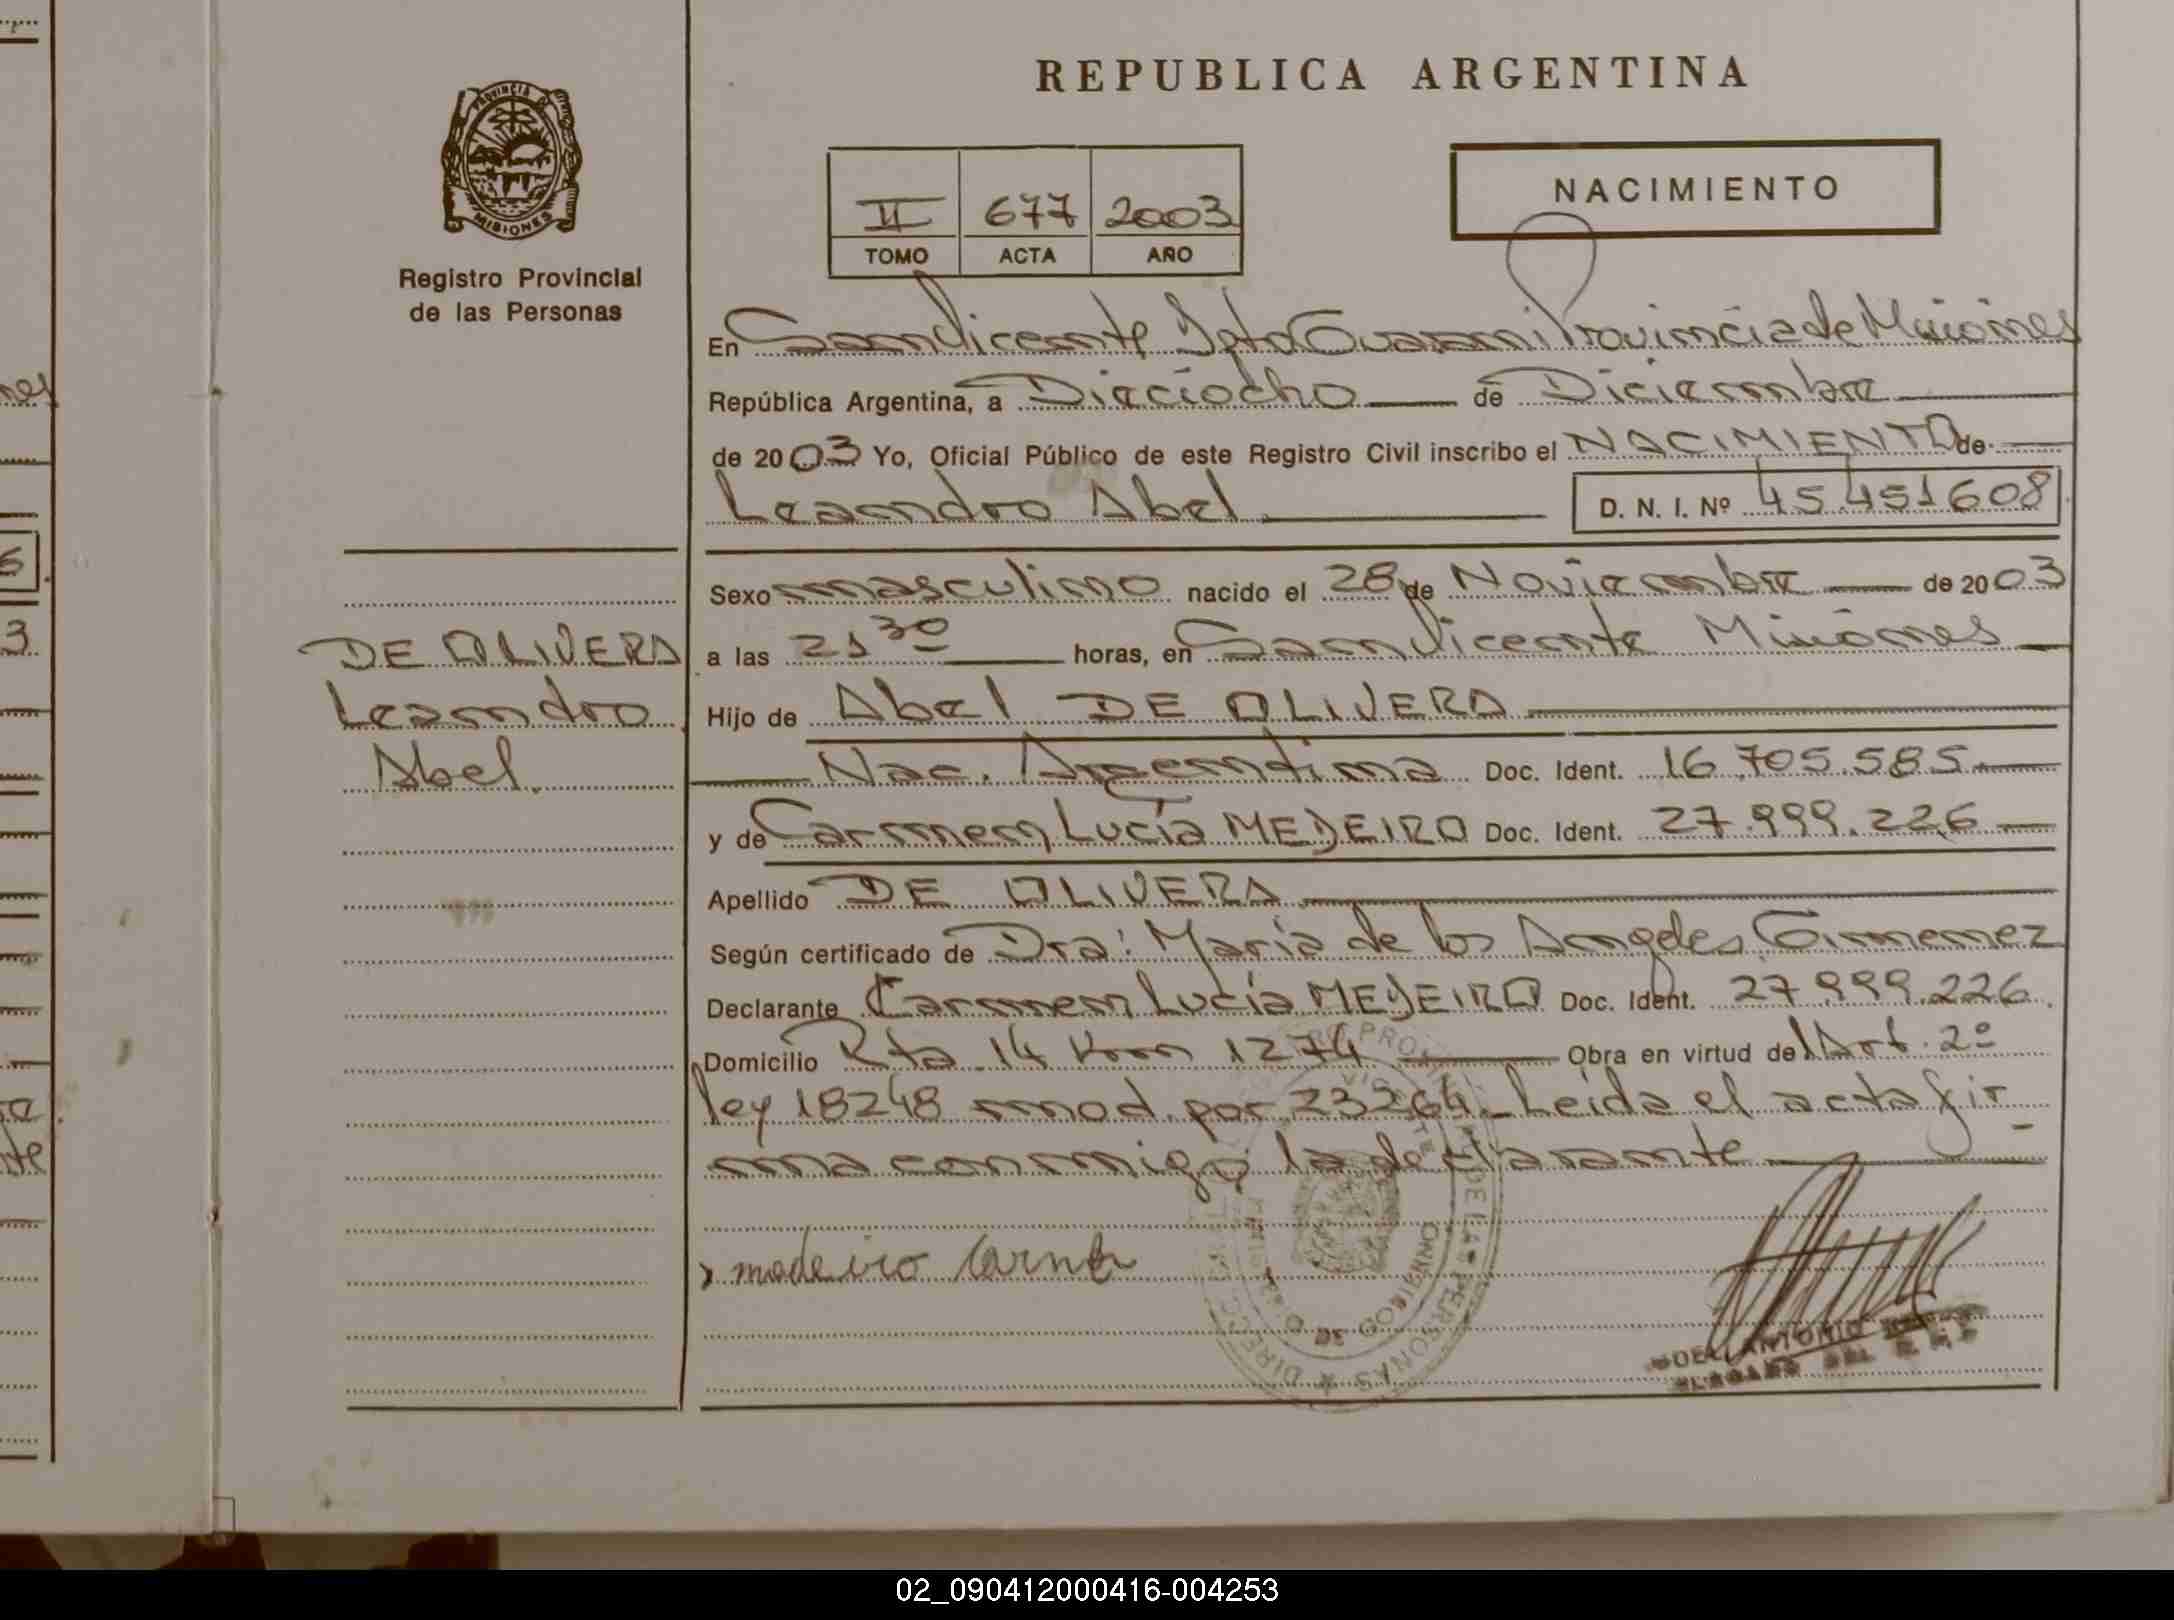 REPUBLICA ARGENTINA
PROVINCIA DE
MISIONES
Registro Provincial
de las Personas
NACIMIENTO
II 677 2003
TOMO ACTA AÑO
En San Vicente Dpto Guarani Provincia de Misiones
República Argentina, a Dieciocho de Diciembre
de 2003 Yo, Oficial Público de este Registro Civil inscribo el NACIMIENTO de
Leandro Abel
D. N. I. Nº 45.451608
Sexo masculino nacido el 28 de Noviembre de 2003
a las 21 30 horas, en San Vicente Misiones
DE OLIVERA
Leandro
Abel.
Hijo de Abel DE OLIVERA
Nac. Argentina Doc. Ident. 16.705.585
y de Carmen Lucía MEDEIRO Doc. Ident. 27.999.226
Apellido DE OLIVERA
Según certificado de Dra: María de los Angeles Gimenez
Declarante Carmen Lucía MEDEIRO Doc. Ident. 27.999.226
Domicilio Rta 14 Km 1274 Obra en virtud del Art. 2º
ley 18248 mod. por 23264 Leída el acta fir
ma conmigo la declarante
madeiro Carmen
DE GOBIERNO
DE LAS PERSONAS
ANTONIO
02_090412000416-004253